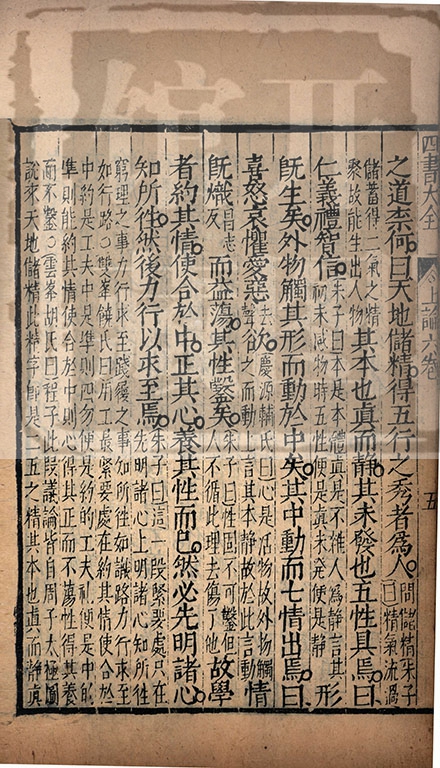 四書大全 上論六卷 五
之道柰何曰天地儲精得五行之秀者爲人問儲精朱子
曰精氣流過
儲蓄得二氣之精
聚故能生出人物其本也真而靜其未發也五性具焉曰
仁義禮智信朱子曰本是本體真是不雜人爲靜言其
初未感物時五性便是真未發便是靜形
旣生矣外物觸其形而動於中矣其中動而七情出焉曰
喜怒哀懼愛惡去聲欲慶源輔氏曰心是活物故外物觸
之而動上言其本靜故於此言動情
旣熾昌志反而益蕩其性鑿矣朱子曰性固不可鑿但
人不循此理去傷了他故學
者約其情使合於中正其心養其性而已然必先明諸心
知所徃然後力行以求至焉朱子曰這一段緊要處只在
先明諸心上明諸心知所徃
窮理之事力行求至踐履之事知所徃如識路力行求至
如行路○雙峯饒氏曰用工最緊要處在約其情使合於
中約是工夫中是準則四勿便是約的工夫禮便是中的
準則能約其情使合於中則心得其正而不蕩性得其養
而不鑿○雲峯胡氏曰程子此段議論皆自周子太極圖
說來天地儲精此精字即是二五之精其本也真而靜真